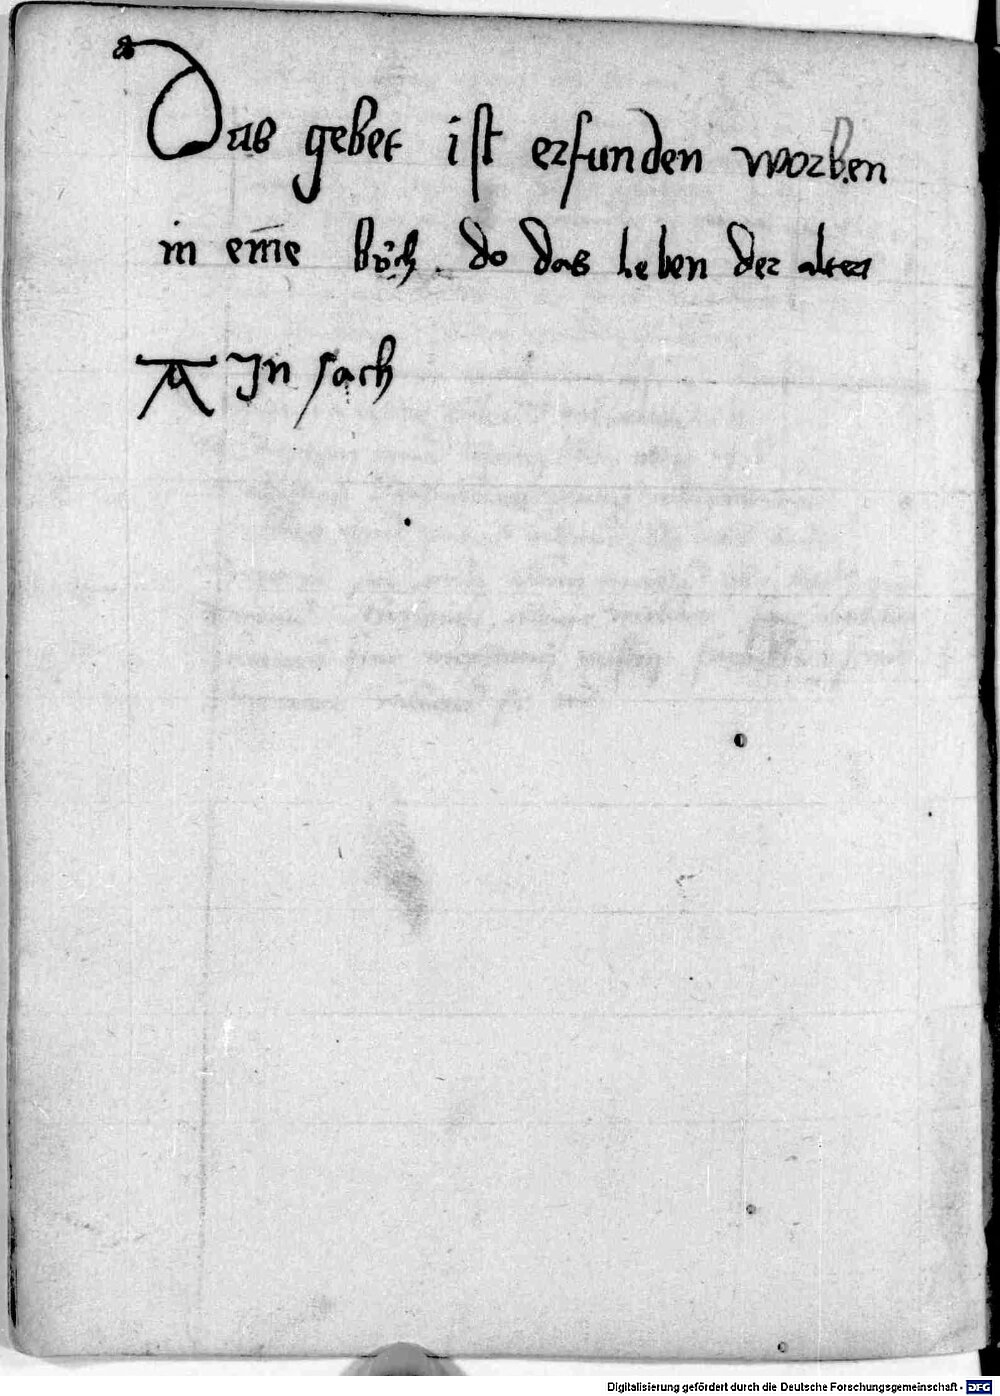 Das gebet ist erfunden worben
in eime bůch do das leben der alten
A In sach
Digitalisierung gefördert durch die Deutsche Forschungsgemeinschaft - DFG